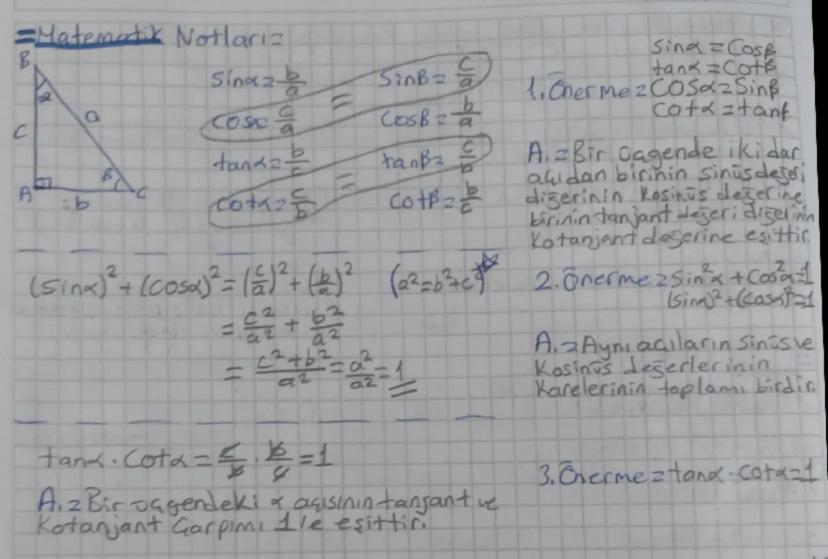 =Matematik Notları=
B
α
c
a
A
β
C
=b
sinα=b/a
cosα c/a
tanα=b/c
cotα=c/b
=
=
sinβ=c/a
cosβ=b/a
tanβ=c/b
cotβ=b/c
sinα=cosβ
tanα=cotβ
1.Önerme=cosα=sinβ
cotα=tanβ
A.=Bir üçgende iki dar
açıdan birinin sinüs değeri
diğerinin kosinüs değerine
birinin tanjant değeri diğerinin
kotanjant değerine eşittir.
(sinα)²+(cosα)²=(c/a)²+(b/a)² (a²=b²+c²)
=c²/a²+b²/a²
=c²+b²/a²=a²/a²=1
2.Önerme=sin²α+cos²α=1
(sinα)²+(cosα)²=1
A.=Aynı açıların sinüs ve
kosinüs değerlerinin
karelerinin toplamı birdir.
tanα.cotα=c/b.b/c=1
A.=Bir üçgendeki α açısının tanjant ve
kotanjant çarpımı 1'e eşittir.
3.Önerme=tanα.cotα=1